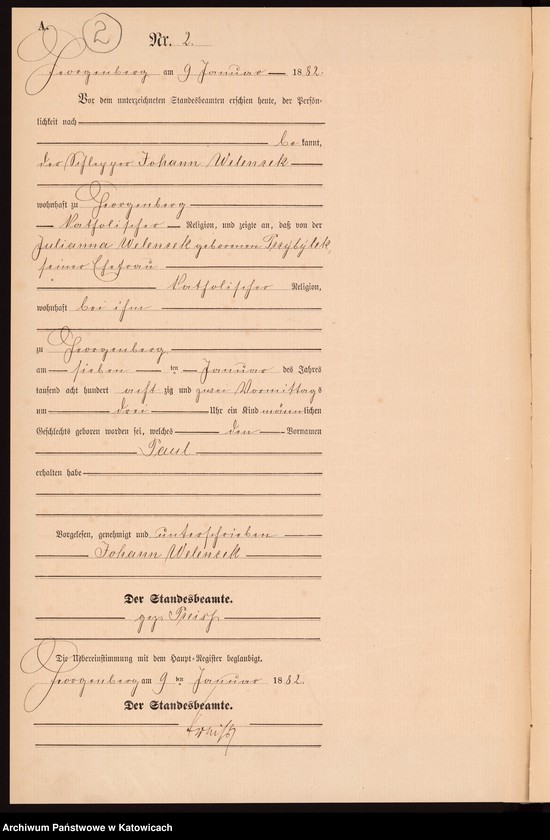 A.
2
Nr. 2.
Georgenberg am 9 Januar 1882.
Vor dem unterzeichneten Standesbeamten erschien heute, der Persön-
lichkeit nach
be kannt,
der Schlepper Johann Welensek
wohnhaft zu Georgenberg
katholischer Religion, und zeigte an, daß von der
Julianna Welensek geborenen Przybylek,
seiner Ehefrau
katholischer Religion,
wohnhaft bei ihm
zu Georgenberg
am sieben ten Januar des Jahres
tausend acht hundert acht zig und zwei Vormittags
um drei Uhr ein Kind männlichen
Geschlechts geboren worden sei, welches den Vornamen
Paul
erhalten habe
Vorgelesen, genehmigt und unterschrieben
Johann Welensek
Der Standesbeamte.
gez.
Die Uebereinstimmung mit dem Haupt-Register beglaubigt.
Georgenberg am 9 ten Januar 1882.
Der Standesbeamte.
Archiwum Państwowe w Katowicach